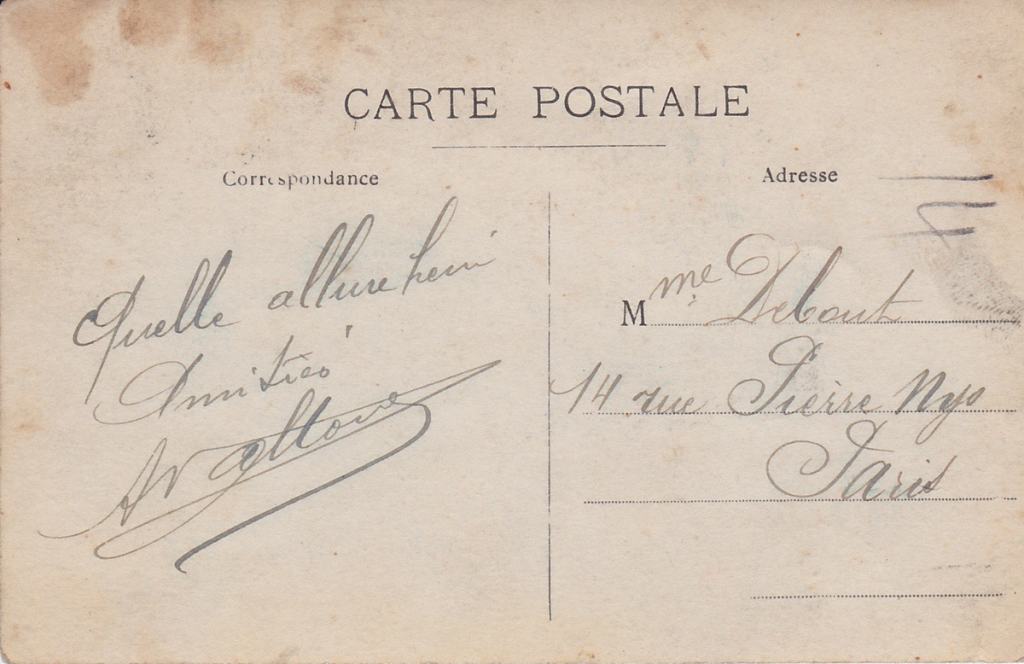 CARTE POSTALE
Correspondance
Quelle allure hein
Amitiés
Adresse
Mme Debout
14 rue Pierre Nys
Paris